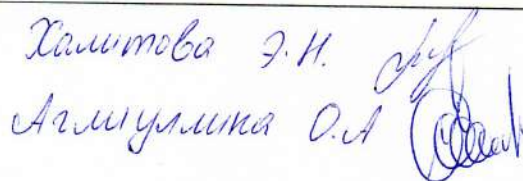 Халитова Э.Н.
Аглиуллина О.А